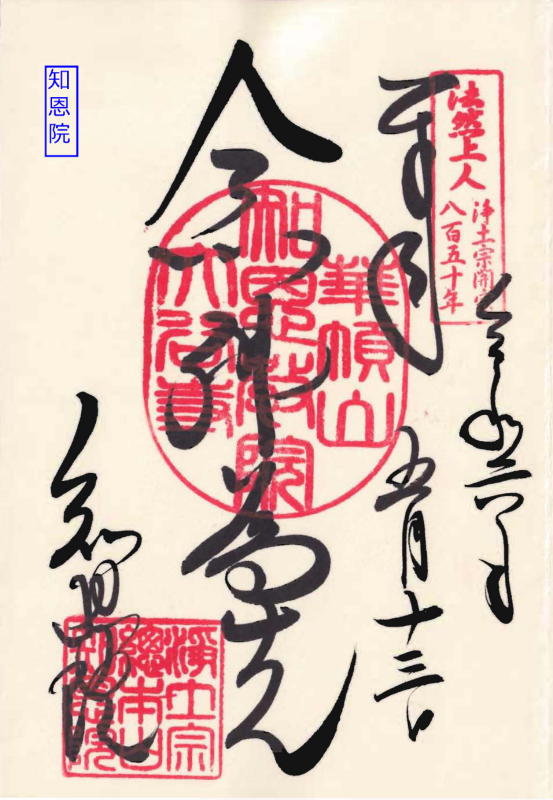 知恩院
法然上人
浄土宗開宗
八百五十年
奉拝
令和六年
五月十三日
念佛為先
華頂山
知恩教院
大谷寺
知恩院
浄土宗
總本山
知恩院